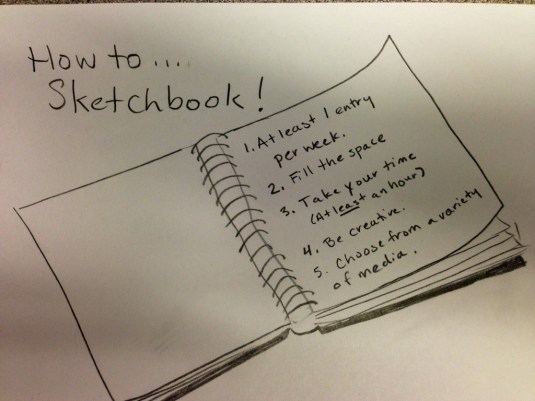 How to ....
Sketchbook!
1. At least 1 entry
per week.
2. Fill the space
3. Take your time
(At least an hour)
4. Be creative.
5. Choose from a variety
of media.